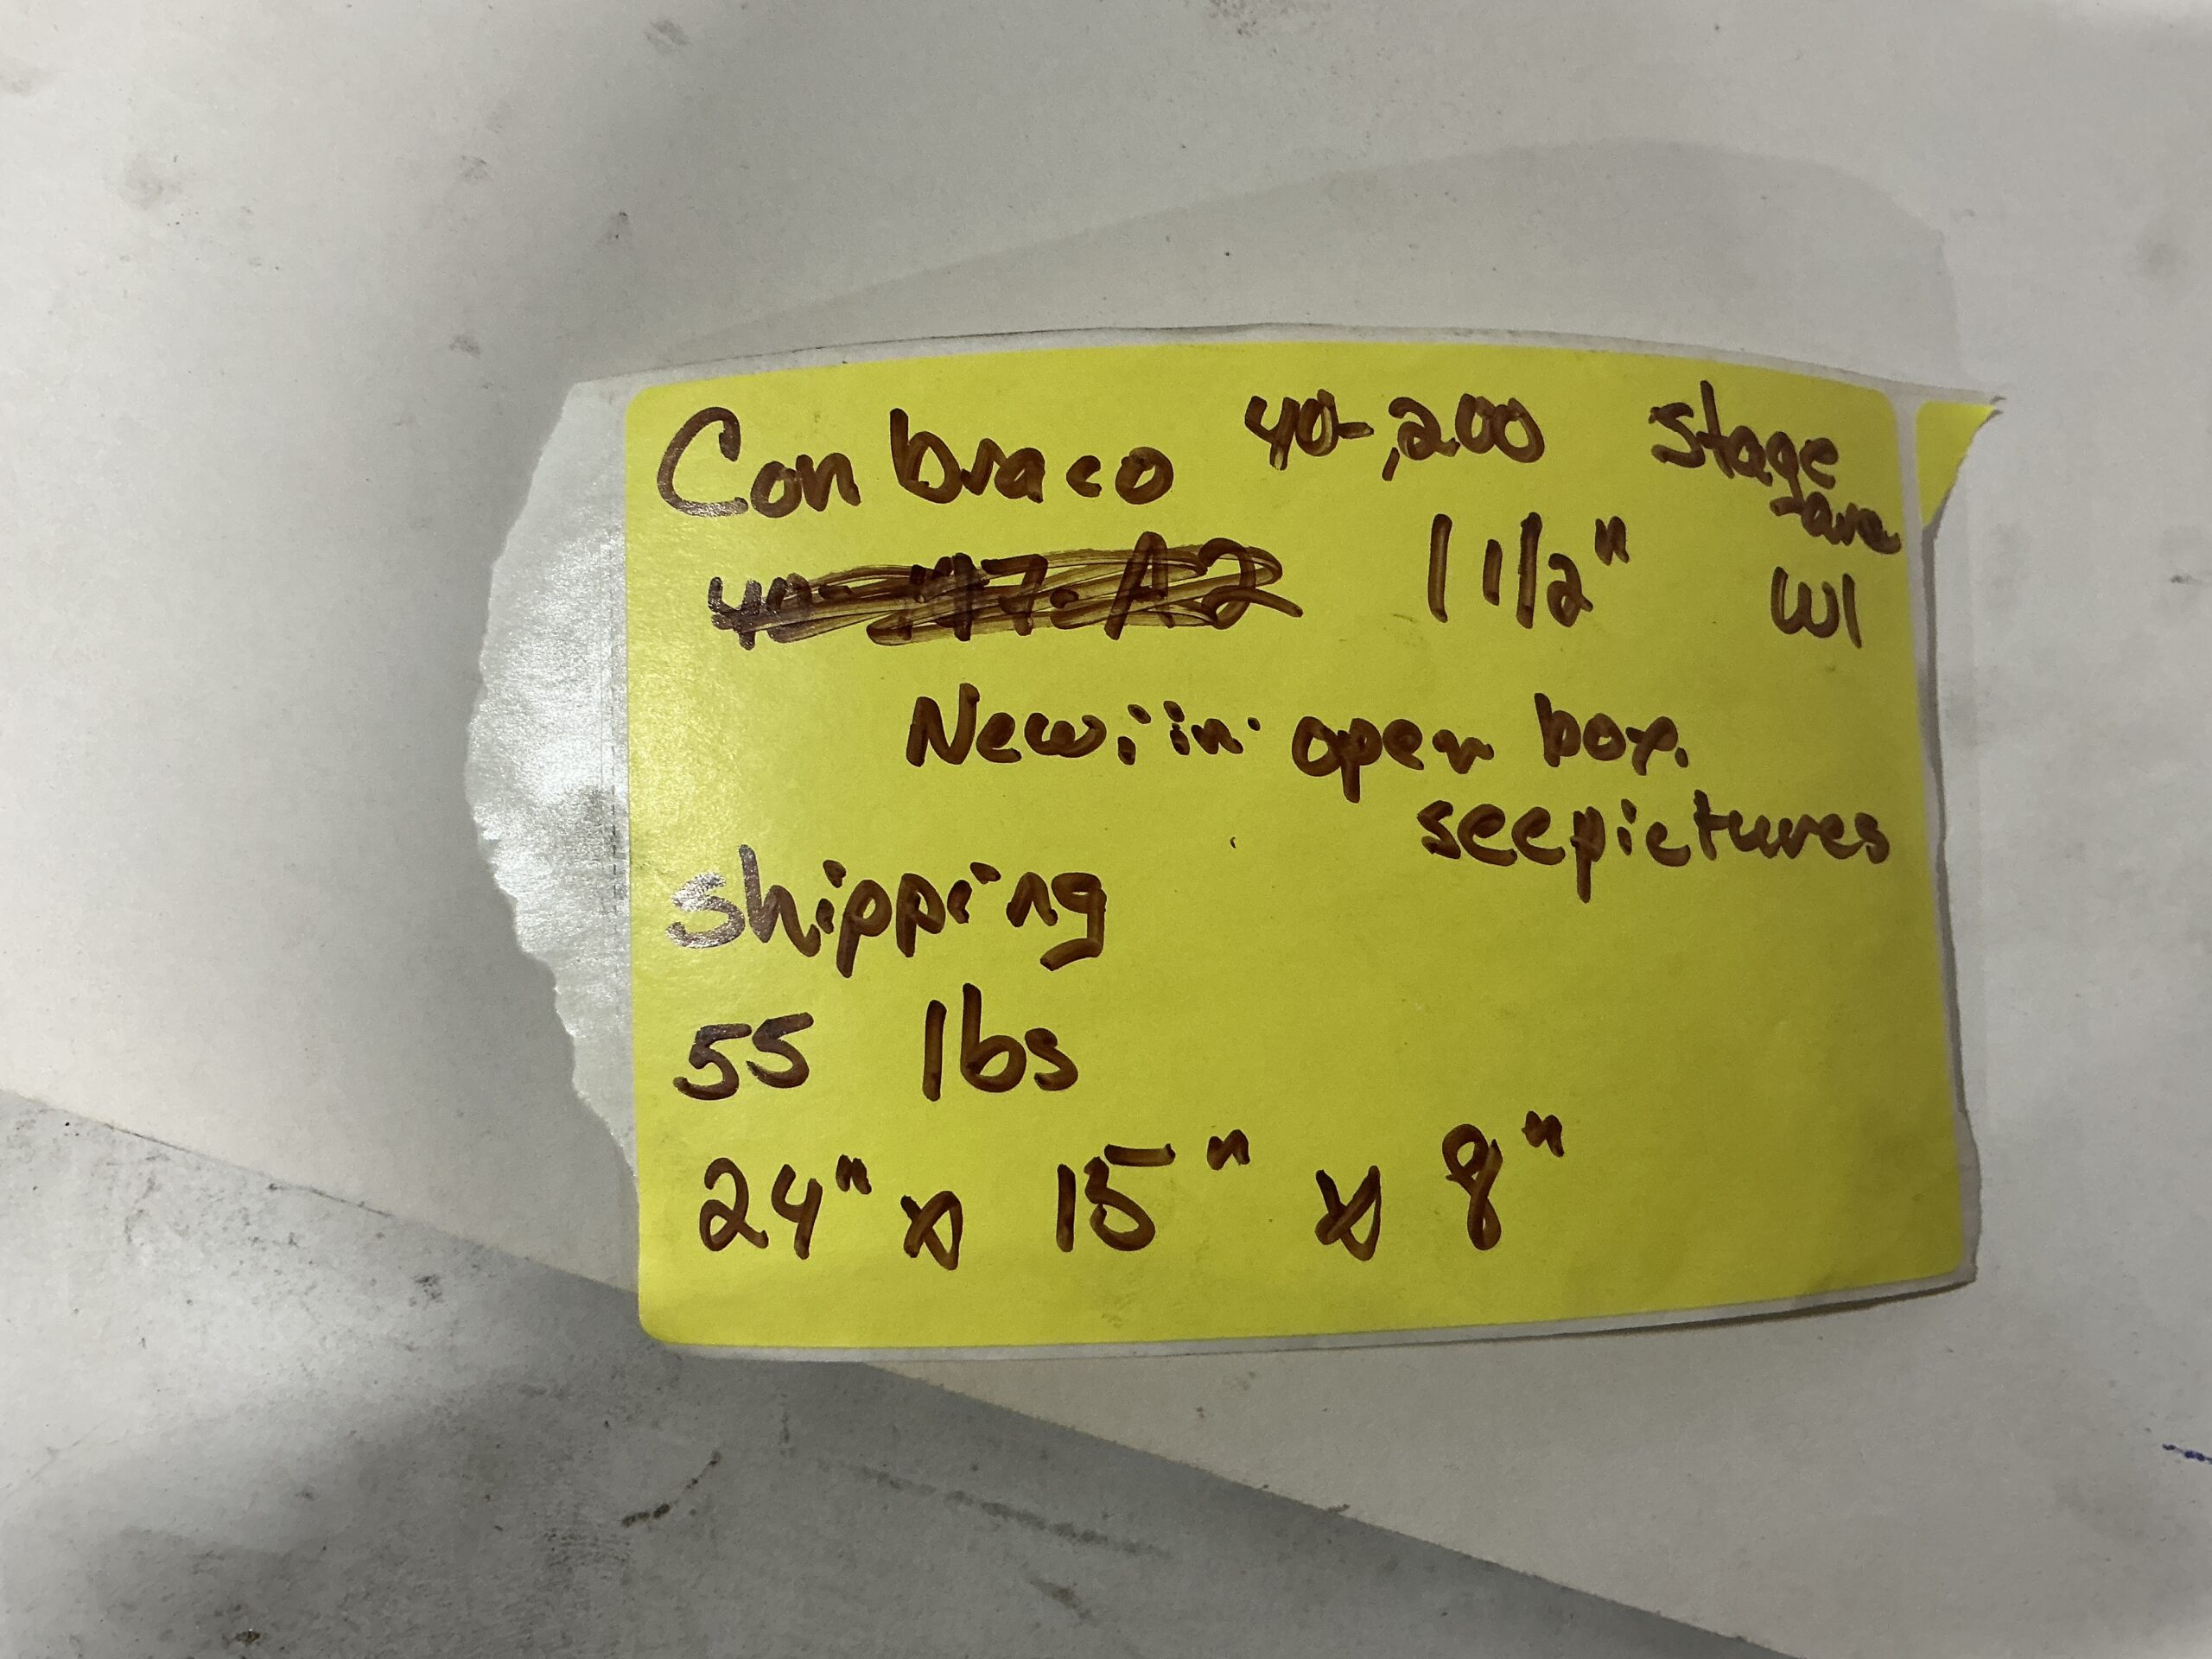 Conbraco 40-,200 Stage
-are
40-147-A2 1 1/2" W1
New: in open box.
see pictures
shipping
55 lbs
24" x 15" x 8"